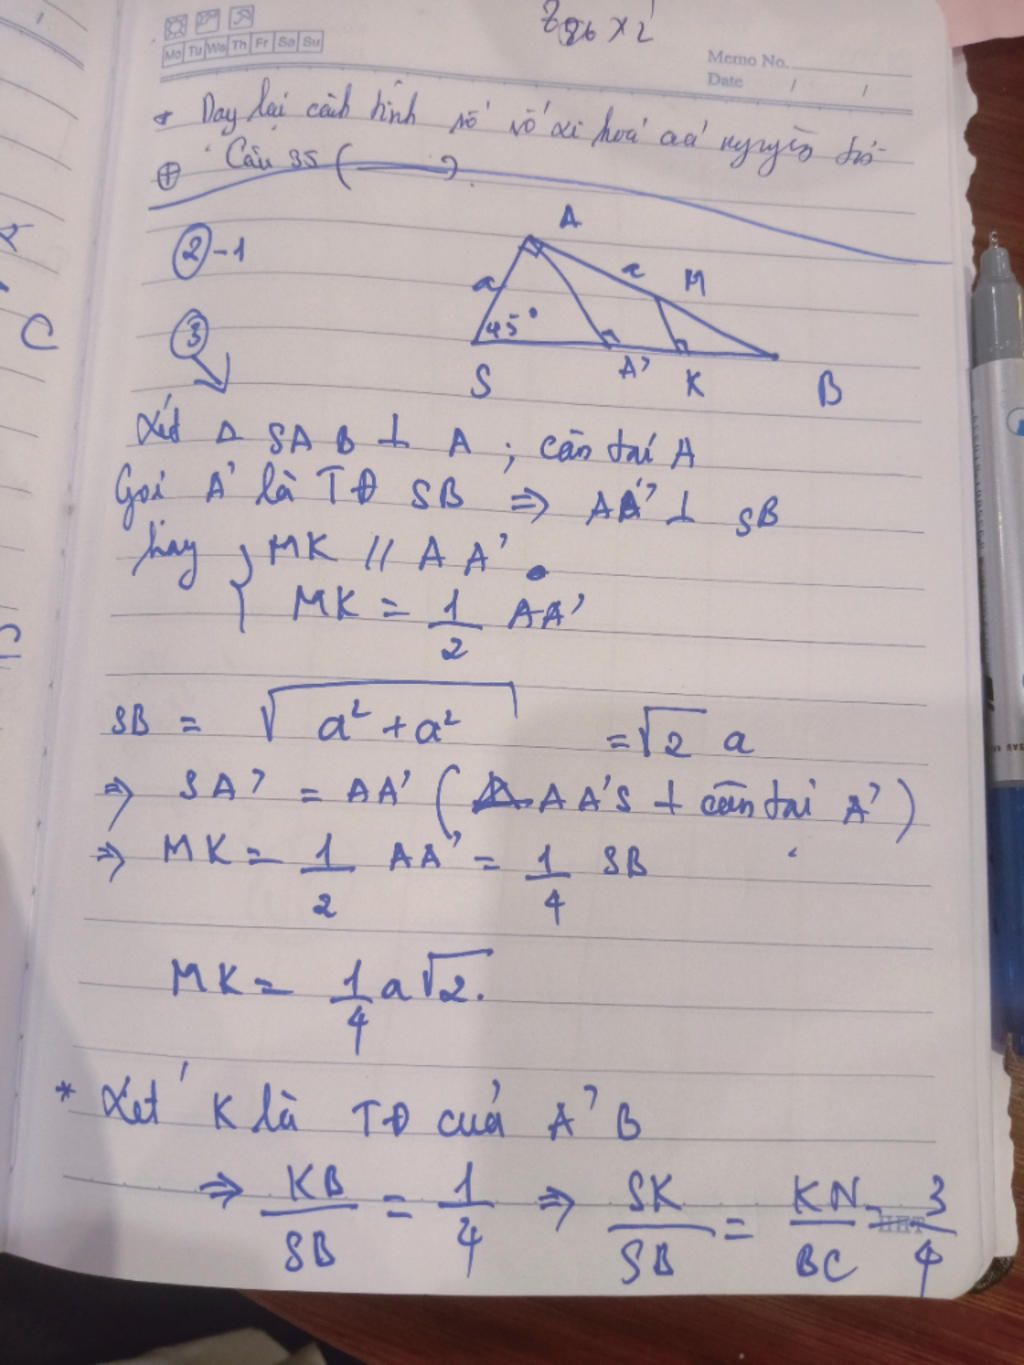 Mo Tu We Th Fr Sa Su
Memo No.
Date / /
* Day lại cách tính số
⊕ Câu 35 ( )
②-1
A
a
a
M
③
45°
S
A'
K
B
Xét Δ SAB ⊥ A ; cân tại A
Gọi A' là TĐ SB ⇒ AA' ⊥ SB
hay { MK // AA'
MK = 1/2 AA'
SB = √(a² + a²) = √2 a
⇒ SA' = AA' ( Δ AA'S ⊥ cân tại A' )
⇒ MK = 1/2 AA' = 1/4 SB
MK = 1/4 a√2.
* Xét K là TĐ của A'B
⇒ KB/SB = 1/4 ⇒ SK/SB = KN/BC = 3/4
C